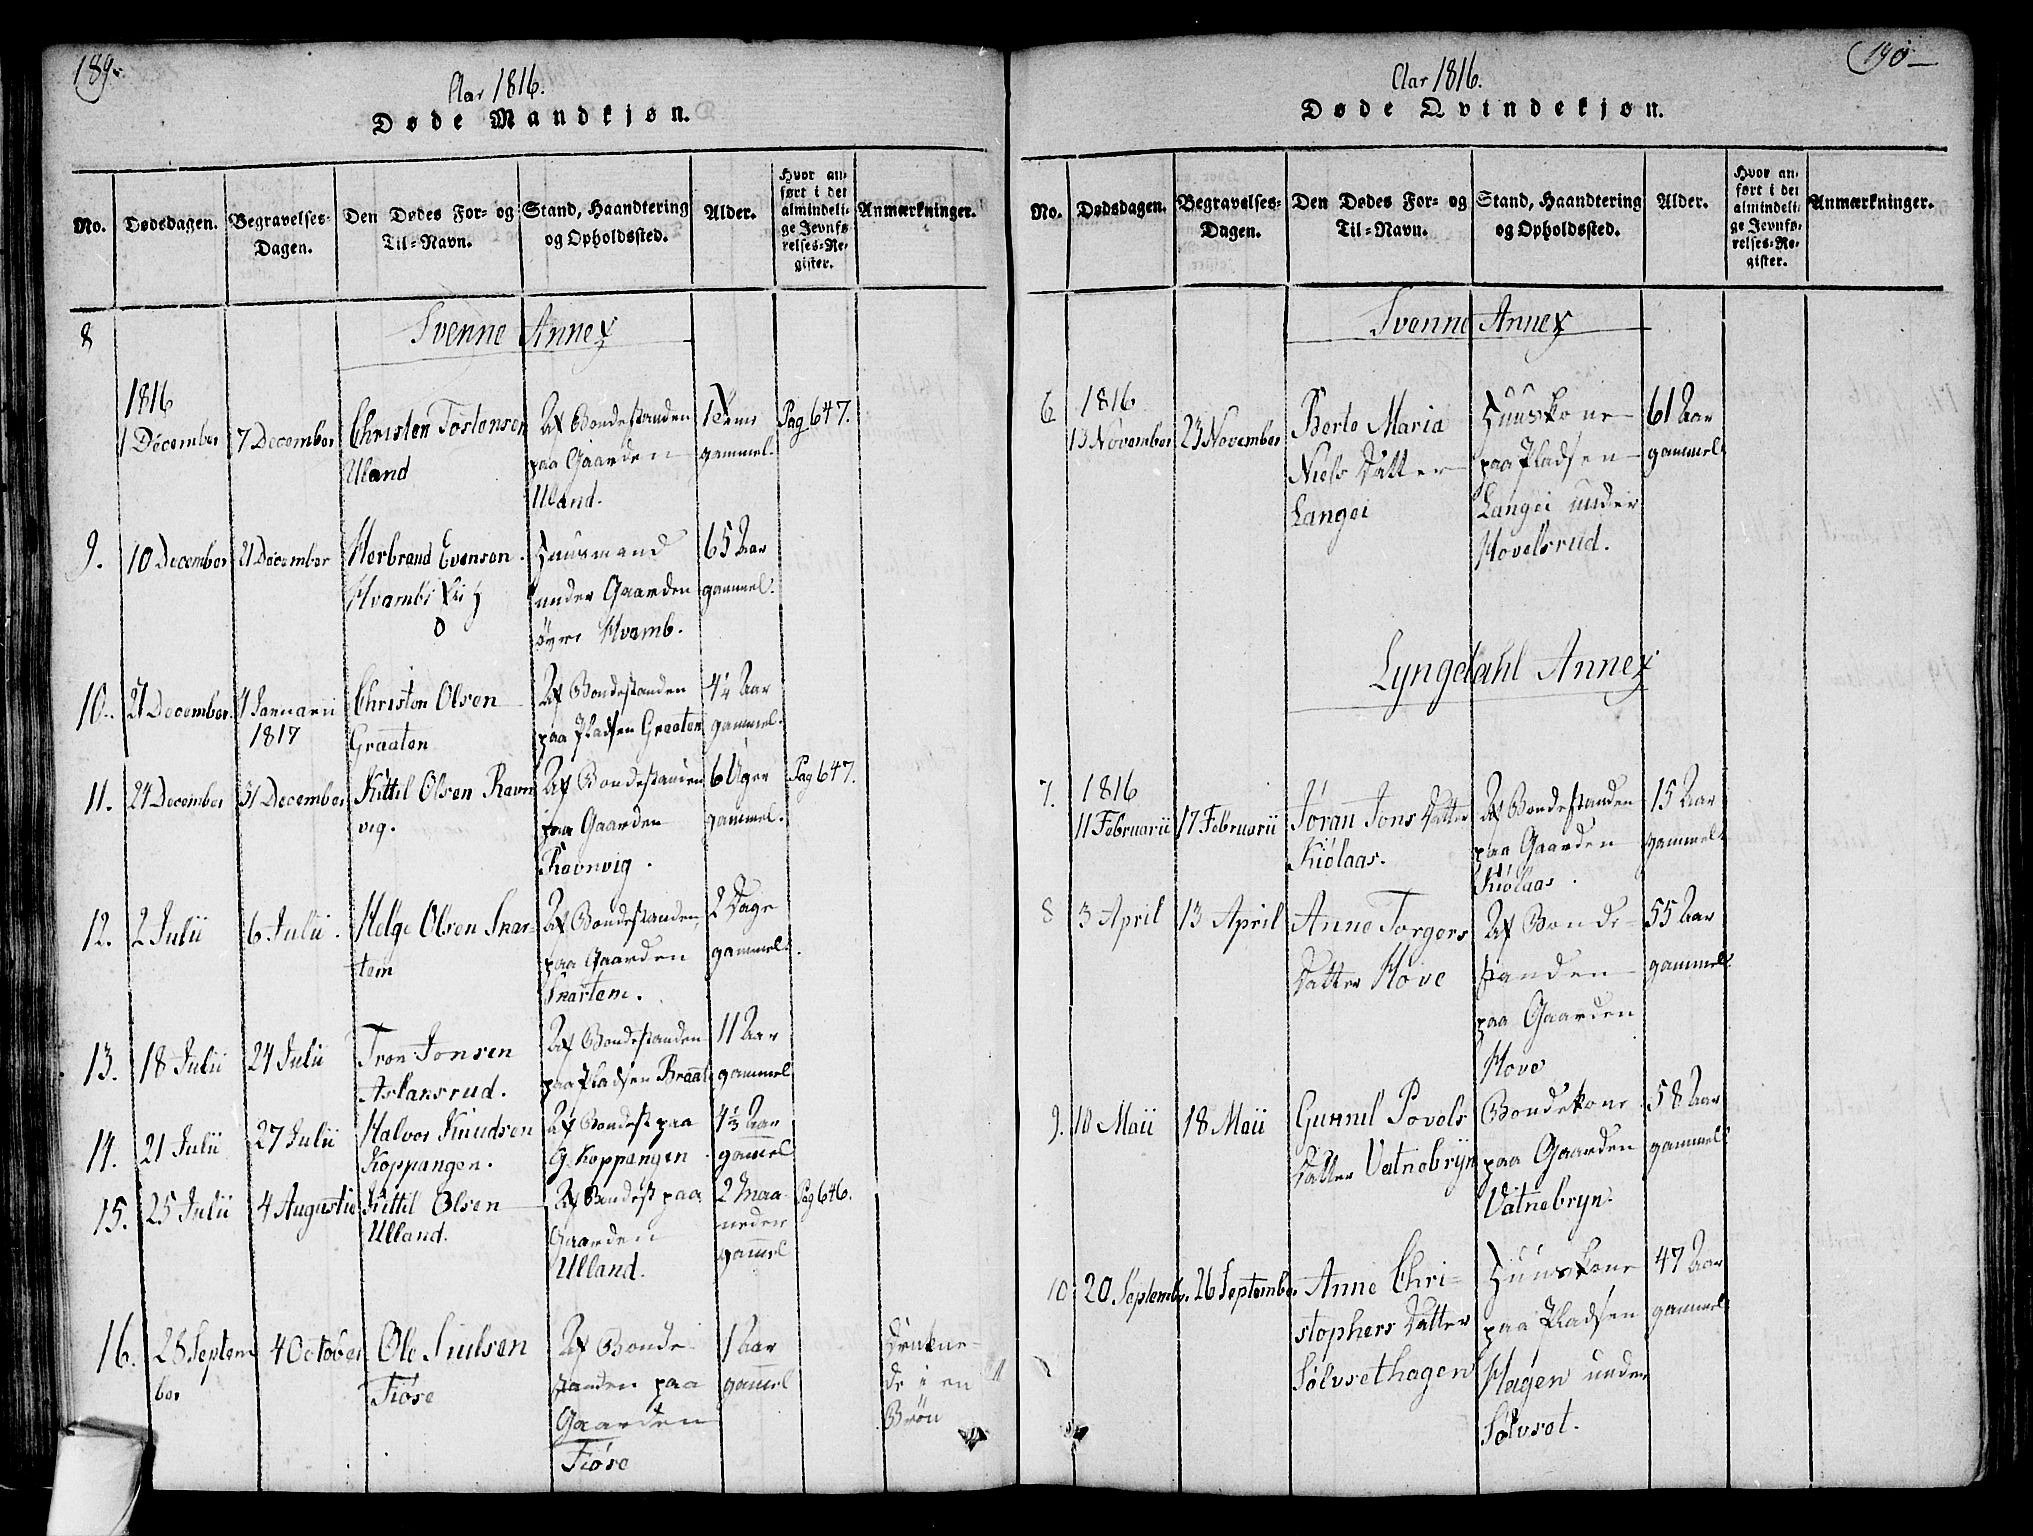 189.
Aar 1816.
Døde Mandkjøn.
No.
Dødsdagen.
Begravelses-
Dagen.
Den Dødes For- og
Til-Navn.
Stand, Haandtering
og Opholdssted.
Alder.
Hvor an-
ført i det
almindeli-
ge Jevnfø-
relses-Re-
gister.
Anmærkninger.
Svenne Annex
8
1816
1 December
7 December
Christen Tostensen
Uland
Af Bondestanden
paa Gaarden
Uland.
gammel.
Pag 647.
9.
10 December
21 December
Herbrand Evensen
Huusmand
under Gaarden
øvre Hvamb.
65 Aar
gammel.
10.
21 December.
4 Januarii
1817
Christen Olsen
Graaten
Af Bondestanden
paa Pladsen Graaten
4¼ Aar
gammel.
11.
24 December
31 December
Kittil Olsen Ravn
vig.
Af Bondestanden
paa Gaarden
Ravnvig.
6 Uger
gammel.
Pag 647.
12.
2 Julii
6 Julii.
Helge Olsen Snar-
tem
Af Bondestanden
paa Gaarden
Snartem.
2 Dage
gammel.
13.
18 Julii
24 Julii
Tron Jonsen
Aslansrud.
Af Bondestanden
paa Pladsen Braate
11 Aar
gammel
14.
21 Julii
27 Julii
Halvor Knudsen
Koppangen.
Af Bondest paa
G. Koppangen
4½ Aar
gammel
15.
25 Julii
4 Augustii
Kittil Olsen
Ulland.
Af Bondest paa
Gaarden
Ulland.
2 Maa
neder
gammel
Pag 646.
16.
28 Septem
ber
4 October
Ole Siulsen
Fiøse
Af Bonde
standen paa
Gaarden
Fiøse
1 Aar
gammel
Drukne-
de i en
Brøn
190
Aar 1816.
Døde Qvindekjøn.
No.
Dødsdagen.
Begravelses-
Dagen.
Den Dødes For- og
Til-Navn.
Stand, Haandtering
og Opholdssted.
Alder.
Hvor an-
ført i det
almindeli-
ge Jevnfø-
relses-Re-
gister.
Anmærkninger.
Svenne Annex
6
1816
13 November
23 November
Berte Maria
Niels Datter
Langøi
Huuskone
paa Pladsen
Langøi under
Hovelsrud.
61 Aar
gammel
Lyngdahl Annex
7.
1816
11 Februarii
17 Februarii
Jøran Jons Datter
Kiølaas.
Af Bondestanden
paa Gaarden
Kiølaas.
15 Aar
gammel
8
3 April
13 April
Anne Torgers
Datter Hove
Af Bonde-
standen
paa Gaarden
Hove
55 Aar
gammel
9.
10 Maii
18 Maii
Gunnil Povels
Datter Vatnebryn
Bondekone
paa Gaarden
Vatnebryn.
58 Aar
gammel
10
20 Septembr.
26 September
Anne Chri-
stophers Datter
Sølvsethagen
Huuskone
paa Pladsen
Hagen under
Sølvset.
47 Aar
gammel